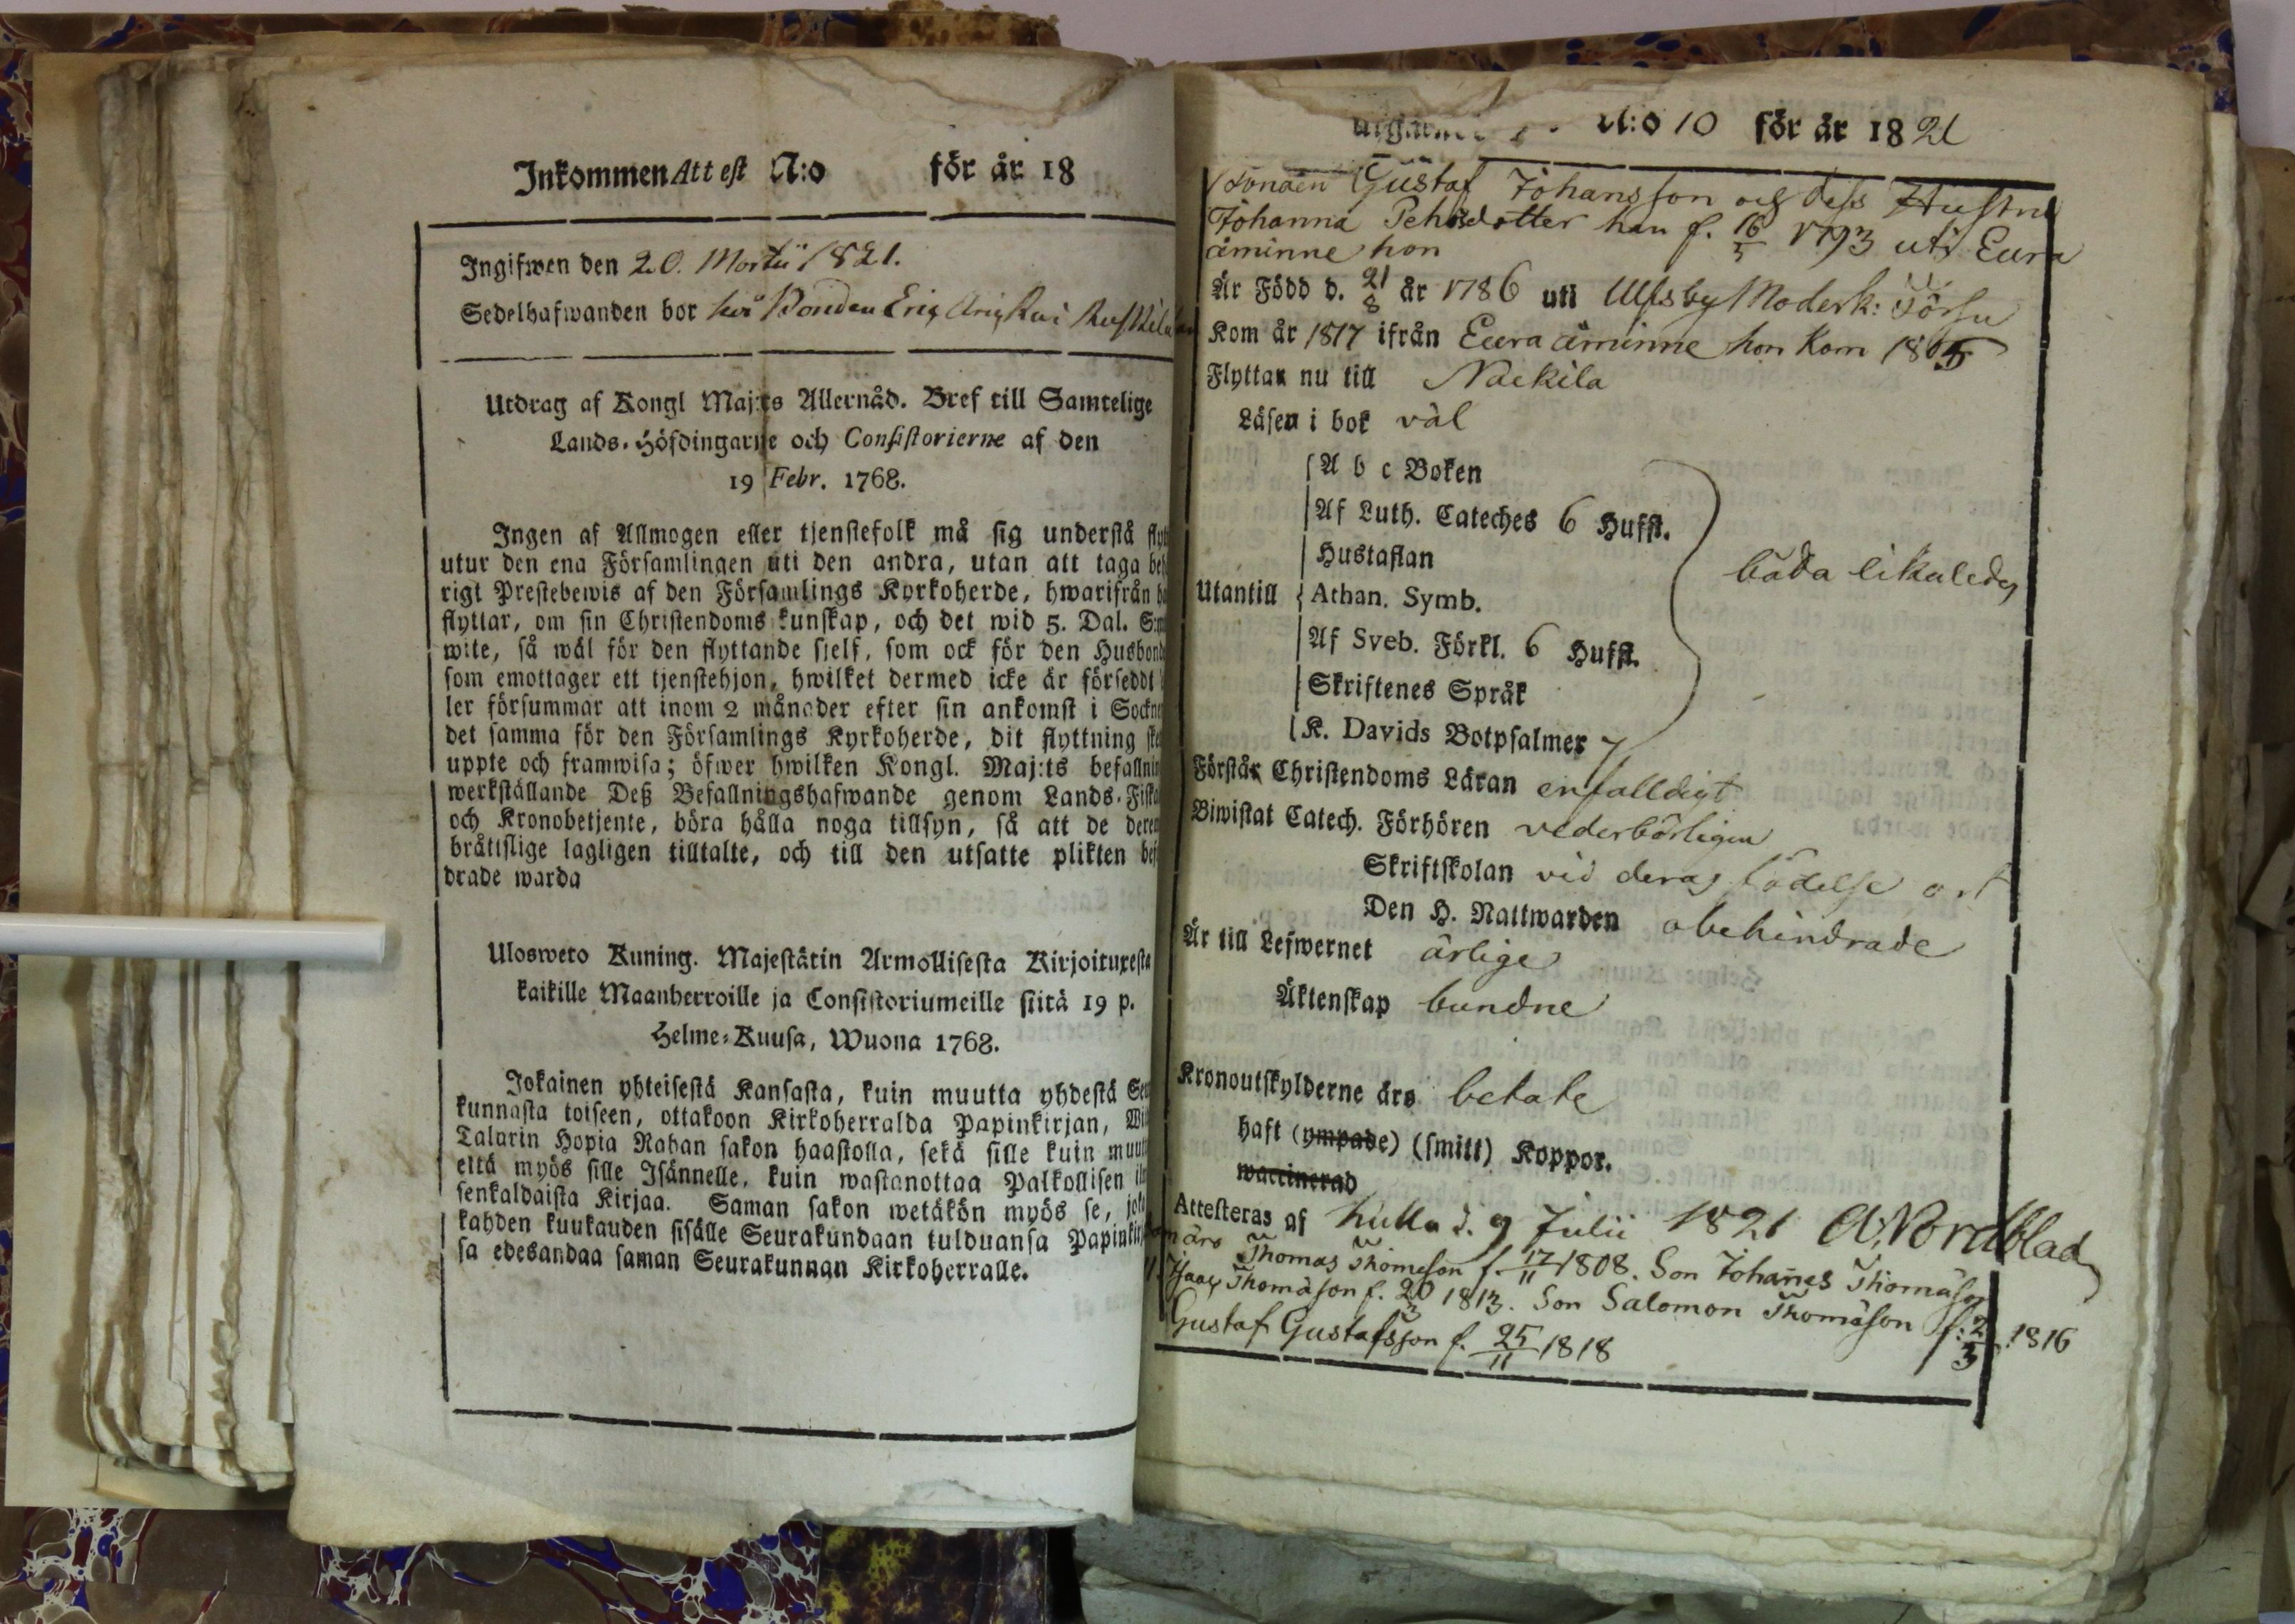 Inkommen Attest N:o för år 18
Ingifwen den 20. Martii 1821.
Sedelhafwanden bor hos Bonden Eric
Utdrag af Kongl Maj:ts Allernåd. Bref till Samtelige
Lands-Höfdingarne och Consistorierne af den
19 Febr. 1768.
Ingen af Allmogen eller tjenstefolk må sig understå
utur den ena Församlingen uti den andra, utan att taga
rigt Prestebewis af den Församlings Kyrkoherde, hwarifrån
flyttar, om sin Christendoms kunskap, och det wid 5. Dal.
wite, så wäl för den flyttande sjelf, som ock för den Husbond
som emottager ett tjenstehjon, hwilket dermed icke är försedt
ler försummar att inom 2 månader efter sin ankomst i Sockne
det samma för den Församlings Kyrkoherde, dit flyttning
uppte och framwisa; öfwer hwilken Kongl. Maj:ts befallnin
werkställande Deß Befallningshafwande genom Lands-Fiska
och Kronobetjente, böra hålla noga tillsyn, så att de deremo
bråttslige lagligen tilltalte, och till den utsatte plikten bef
drade warda
Ulosweto Kuning. Majestätin Armollisesta Kirjoituxesta
kaikille Maanherroille ja Consistoriumeille siitä 19 p.
Helme-Kuusa, Wuona 1768.
Jokainen yhteisestä Kansasta, kuin muutta yhdestä Seu
kunnasta toiseen, ottakoon Kirkoherralda Papinkirjan,
Talarin Hopia Rahan sakon haastolla, sekä sille kuin muutt
että myös sille Isännelle, kuin wastanottaa Palkollisen
senkaldaista Kirjaa. Saman sakon wetäkön myös se, joka
kahden kuukauden sisälle Seurakundaan tulduansa Papinkirj
sa edesandaa saman Seurakunnan Kirkoherralle.
N:o 10 för år 1821
Gustaf Johansson och dess Hustru
Johanna Pehrsdotter han f. 16/5 1793 uti Eura
åminne hon
Är Född d. 21/8 år 1786 uti Ulfsby Moderk:
Kom år 1817 ifrån Eura åminne hon kom 1805
Flyttar nu till Nackila
Läsen i bok väl
A b c Boken
Af Luth. Cateches 6 Hufst.
Hustaflan
Utantill Athan. Symb. båda likaledes
Af Sveb. Förkl. 6 Hufst.
Skriftenes Språk
K. Davids Botpsalmer 7
Förstår Christendoms Läran enfalldigt
Biwistat Catech. Förhören vederbörligen
Skriftskolan vid deras födelse ort
Den H. Nattwarden obehindrade
Är till Lefwernet ärlige
Äktenskap bundne
Kronoutskylderne äro betalte
haft (ympade) (smitt) Koppor.
waccinerad
Attesteras af Kulla d. 9 Julii 1821 A. Nordblad
äro Thomas Thomeson f. 17/11 1808. Son Johannes Thomäson
Isaac Thomäson f. 20/3 1813. Son Salomon Thomäson f: 2/3 1816
Gustaf Gustafsson f. 25/11 1818